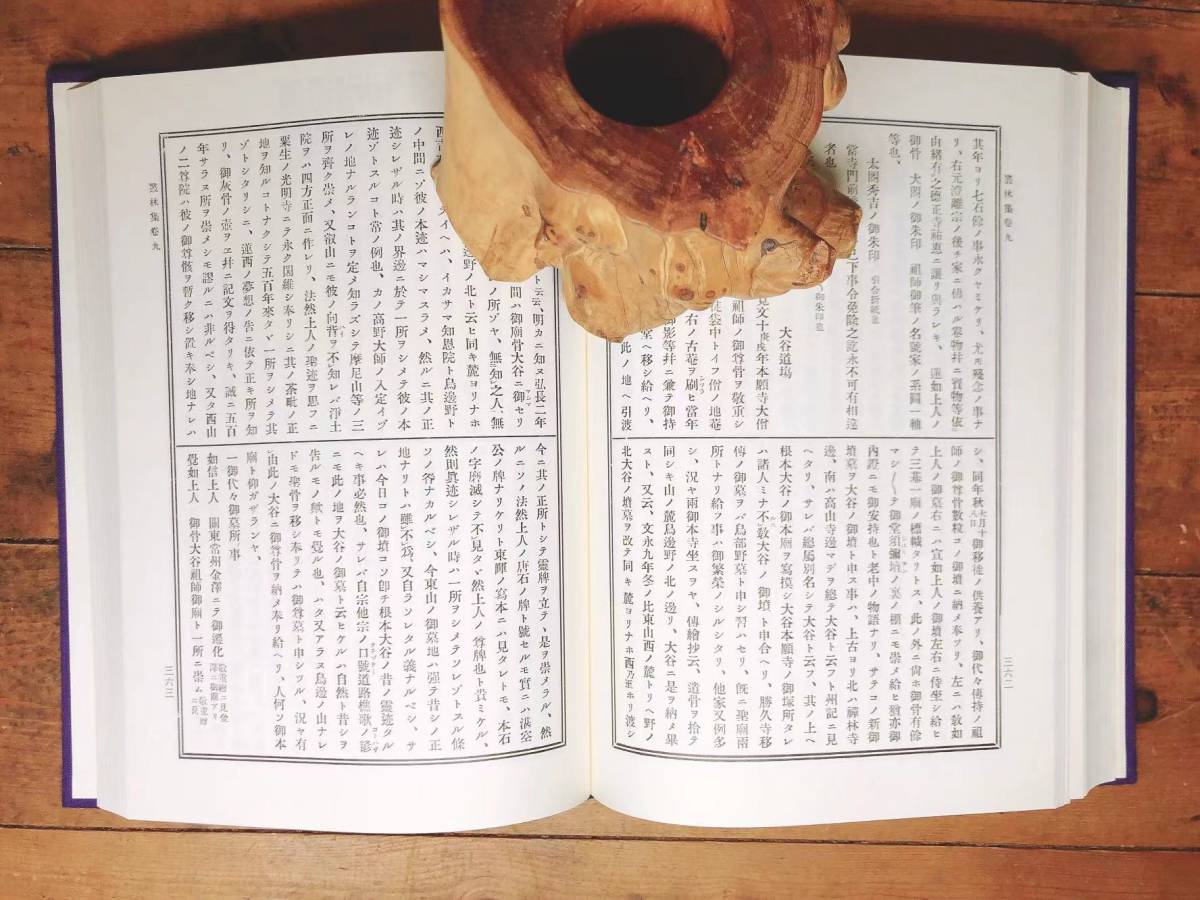 叢林集卷九
其年ヨリ七石餘ノ事永クヤミケリ、尤モ殘念ノ事ナ
リ、右元澄離宗ノ後チ家ニ傳ハル寥物幷ニ寳物等依
由緒有之德正寺祐惠ニ讓リ與ラレキ、蓮如上人ノ
御骨 太閤ノ御朱印 祖師御筆ノ名號家ノ系圖一軸
等也、
太閤秀吉ノ御朱印
當寺門前
者也
大谷道塲
年本願寺大僧
祖師ノ御尊骨ヲ敬重シ
徒袋中トイフ僧ノ地菴
右ノ古菴ヲ刷ヒ當年
御影等幷ニ兼テ御持
堂ヘ移シ給ヘリ、
此ノ地ヘ引渡
シ、同年秋七月十八日御移徙ノ供養アリ、御代々傳持ノ祖
師ノ御尊骨數粒コノ御墳ニ納メ奉ツリ、左ニハ敎如
上人ノ御墓右ニハ宣如上人ノ御墳左右ニ侍坐シ給ヒ
テ三墓一廟ノ標幟タリトス、此ノ外ニ尙ホ御骨有餘
マシ〳〵テ御堂須彌壇ノ裏ノ棚ニモ崇メ給ヒ猶亦御
內證ニモ御安持也ト老中ノ物語ナリ、サテコノ新御
墳墓ヲ大谷ノ御墳ト申ス事ハ、上古ヨリ北ハ禪林寺
邊、南ハ高山寺邊マデヲ總テ大谷ト云フト州記ニ見
ヘタリ、サレバ總屬別名シテ大谷ト云フ、其ノ上ヘ
根本大谷ノ御本廟ヲ寫摸シ大谷本願寺ノ御塚所タレ
ハ諸人ミナ不敎大谷ノ御墳ト申合ヘリ、勝久寺移
傳ノ御墓ヲバ鳥部野墓ト申シ習ハセリ、旣ニ聖廟兩
所ナリ給フ事ハ御繁榮ノシルシタリ、他家又例多
シ、況ヤ兩御本寺坐スヲヤ、傳繪抄云、遺骨ヲ拾テ
同シキ山ノ麓鳥邊野ノ北ノ邊リ、大谷ニ是ヲ納メ畢
スト、又云、文永九年冬ノ比東山西ノ麓トリヘ野ノ
北大谷ノ墳墓ヲ改テ同キ麓ヨリナホ西乃至ホリ渡シ
三六二
叢林集卷九
ト云云、明カニ知ヌ弘長二年
間ハ御廟骨大谷ニ御セリ
ノ所ゾヤ、無知之人、無
邊野ノ北ト云ヒ同キ麓ヨリナホ
イヘハ、イカサマ知恩院ト鳥邊野ト
ノ中間ニゾ彼ノ本迹ハマシマスラメ、然ルニ其ノ正
迹シレザル時ハ其ノ界邊ニ於テ一所ヲシメテ彼ノ本
迹ゾトスルコト常ノ例也、カノ高野大師ノ入定イヅ
レノ地ナルランコトヲ定メ知ラズシテ摩尼山等ノ三
所ヲ齊ク崇メ、又叡山ニモ彼ノ向背ヲ不知レバ淨土
院ヲハ四方正面ニ作レリ、法然上人ノ聖迹ヲ思フニ
粟生ノ光明寺ニテ永ク闍維シ奉リシニ其ノ茶毗ノ正
地ヲ知ルコトナクシテ五百年來タヾ一所ヲシメテ其
ゾトシタリシニ、蓮西ノ夢想ノ告ニ依テ正キ所ヲ知
リ、御灰骨ノ壺ヲ幷ニ記文ヲ得タリキ、誠ニ五百
年サラヌ所ヲ崇メシモ謬ルニハ非ルベシ、又タ西山
ノ二尊院ハ彼ノ御尊骸ヲ暫ク移シ置キ奉シ地ナレハ
今ニ其ノ正所トシテ靈牌ヲ立テ、是ヲ崇メラル、然
ルニソノ法然上人ノ唐石ノ牌ト號セルモ實ニハ湛空
公ノ牌ナリケリト東暉ノ寫本ニハ見タレトモ、本石
ノ字磨滅シテ不見タヾ然上人ノ尊牌也ト貴ミケル、
然則眞迹シレザル時ハ一所ヲシメテソレゾトスル條
ソノ咎ナカルベシ、今東山ノ御墓地ハ强テ昔シノ正
地ナリトハ雖不爲、又自ランレタル義ナルベシ、サ
レハ今日コノ御墳コソ卽チ根本大谷ノ昔ノ靈迹タル
ヘキ事必然也、サレバ自宗他宗ノ口號道路樵歌ノ諺
ニモ此ノ地ヲ大谷ノ御墓ト云ヒケルハ自然ト昔シヲ
告ルモノ歟トモ覺ル也、ハタ又アラヌ鳥邊ノ山ナレ
ドモ聖骨ヲ移シ奉リテハ御尊墓ト申シツル、況ヤ有
由此ノ大谷ニ御尊骨ヲ納メ奉リ給ヘリ、人何ソ御本
廟ト仰ガザランヤ、
一御代々御墓所ノ事
如信上人 關東常州金澤ニテ御遷化
覺如上人 御骨大谷祖師御廟ト一所ニ崇ム
三六三